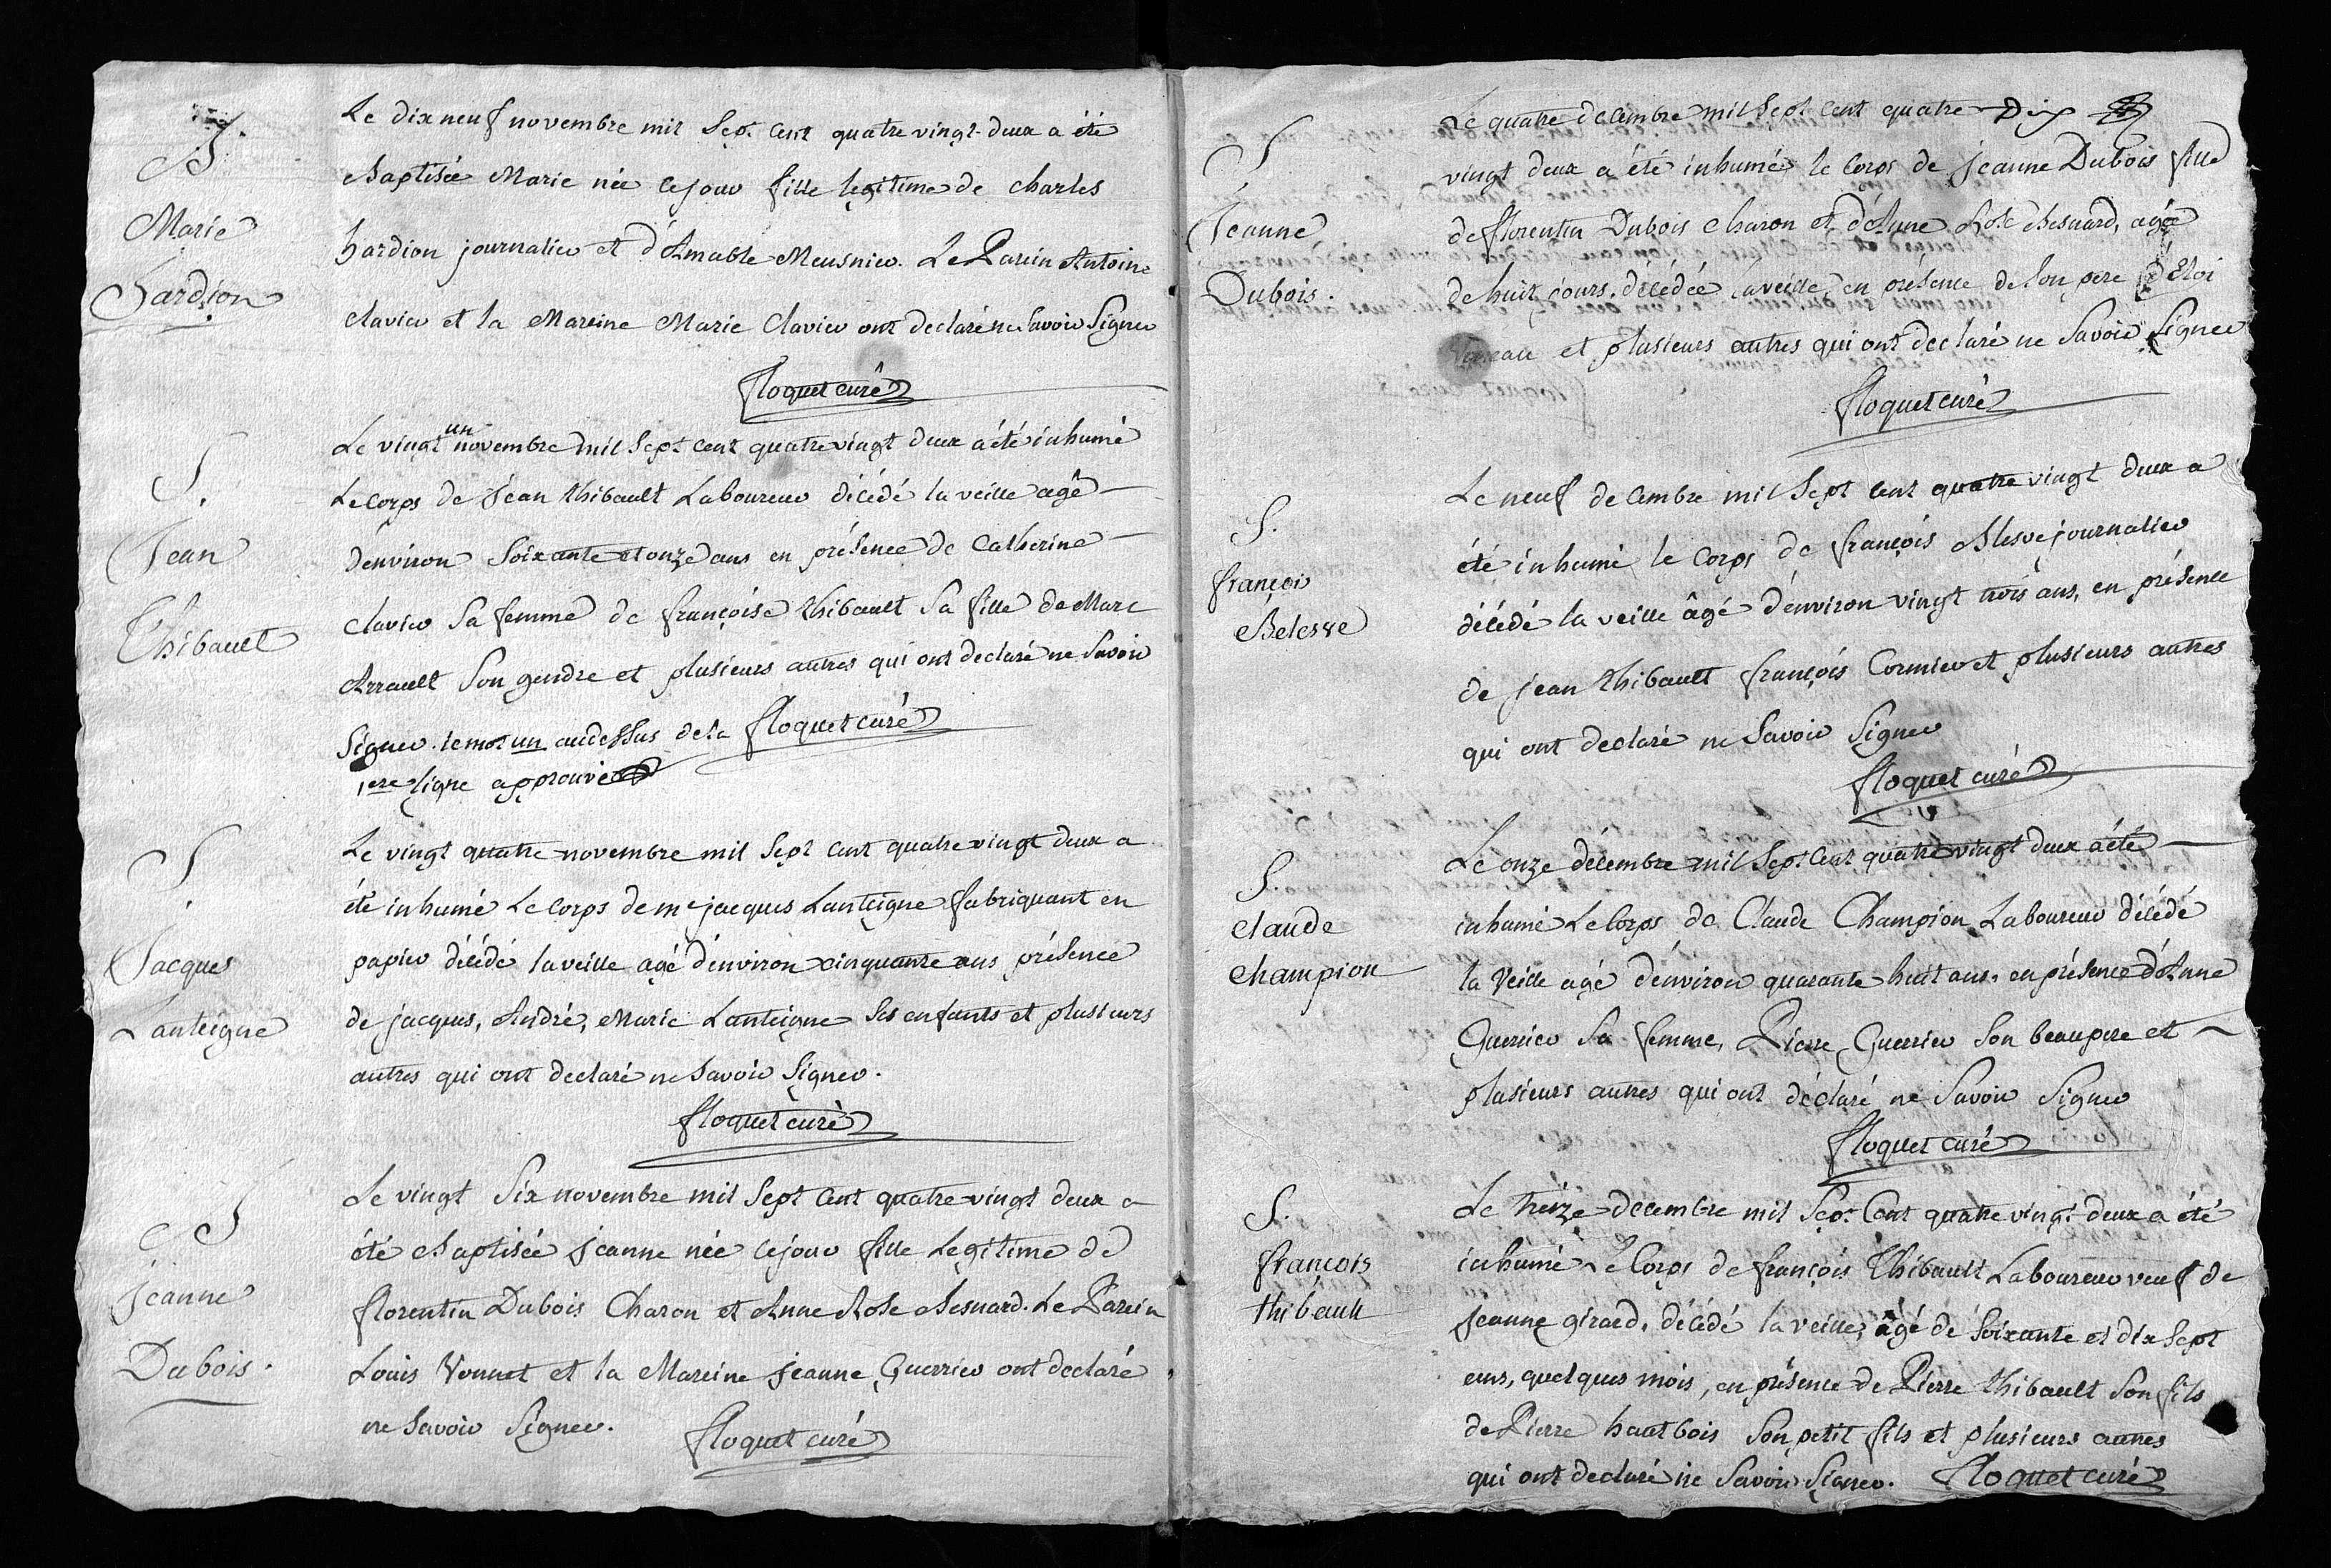 B.
Marie
hardion
Le dix neuf novembre mil Sept Cent quatre vingt-deux a été
Baptisée Marie née cejour fille legitime de charles
hardion journalier et d'Amable Meusnier. Le Parein Antoine
clavier et la Mareine Marie Clavier ont declaré ne Savoir Signer
floquet curé
S.
Jean
Thibault
Le vingt un novembre mil Sept cent quatre vingt deux a été inhumé
Le Corps de Jean thibault Laboureur décédé la veille agé
d'environ Soixante et onze ans en présence de Catherine
clavier Sa femme de françoise thibault Sa fille de Marc
Arrault Son gendre et plusieurs autres qui ont declaré ne Savoir
Signer. le mot un audessus de la floquet curé
1ere ligne approuvé
S.
Jacques
Lanteigne
Le vingt quatre novembre mil Sept cent quatre vingt deux a
été inhumé Le Corps de me jacques Lanteigne fabriquant en
papier décédé la veille agé d'environ cinquante ans présence
de jacques, André, Marie Lanteigne Ses enfants et plusieurs
autres qui ont declaré ne Savoir Signer.
floquet curé
jeanne
Dubois.
Le vingt Six novembre mil Sept Cent quatre-vingt deux a
été Baptisée jeanne née cejour fille Legitime de
florentin Dubois Charon et Anne Rose Besnard. Le Parein
Louis Vonnet et la Mareine jeanne Guerrier ont declaré
ne Savoir Signer.
floquet curé
S
Jeanne
Dubois.
Le quatre decembre mil Sept cent quatre Dix
vingt deux a été inhumé le Corps de jeanne Dubois fille
de florentin Dubois Charon et d'Anne Rose Besnard, agée
de huit jours, décédée la veille, en présence de Son pere d'Eloi
et plusieurs autres qui ont declaré ne Savoir Signer
floquet curé
S.
françois
Belesve
Le neuf decembre mil Sept Cent quatre vingt deux a
été inhumé le Corps de françois Blesve journalier
décédé la veille âgé d'environ vingt trois ans, en présence
de jean thibault françois Cormier et plusieurs autres
qui ont declaré ne Savoir Signer
floquet curé
S.
Claude
Champion
Le onze décembre mil Sept Cent quatre vingt deux a été
inhumé Le Corps de Claude Champion Laboureur décédé
la Veille agé d'environ quarante huit ans. en présence d'Anne
Guerrier Sa femme, Pierre Guerrier Son beaupere et
plusieurs autres qui ont déclaré ne Savoir Signer
floquet curé
S.
françois
thibault
Le treize decembre mil Sept Cent quatre vingt deux a été
inhumé Le Corps de françois Thibault Laboureur veuf de
Jeanne girard, décédé la veille, âgé de Soixante et dix Sept
ans, quelques mois, en présence de Pierre thibault Son fils
de Pierre hautbois Son petit-fils et plusieurs autres
qui ont declaré ne Savoir Signer. floquet curé